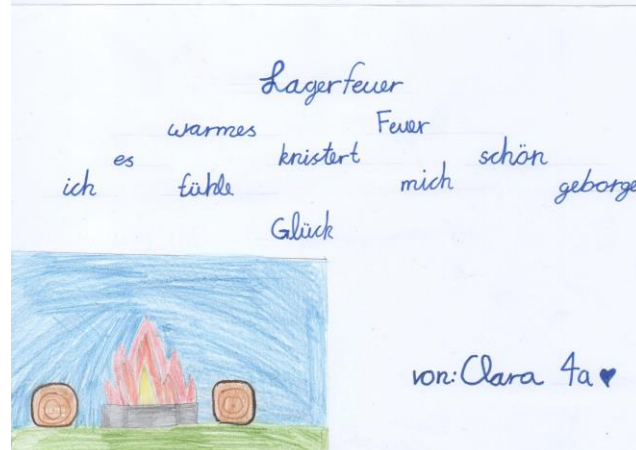 Lagerfeuer
warmes Feuer
es knistert schön
ich fühle mich geborge
Glück
von: Clara 4a ♥